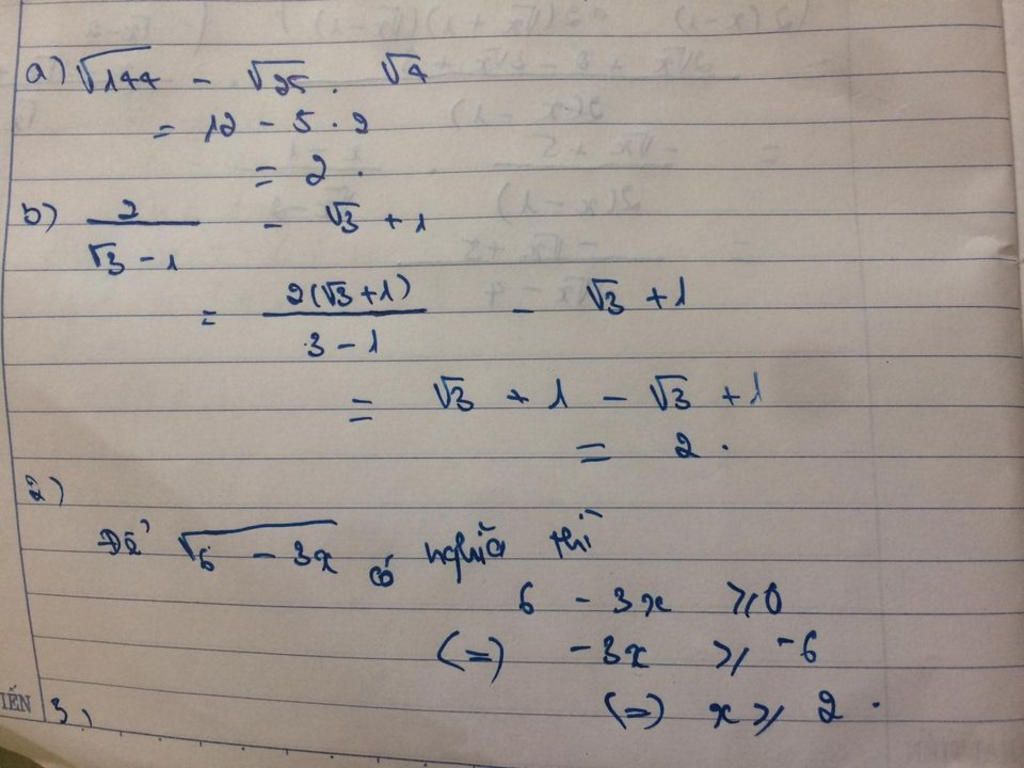 a) √144 - √25 . √4
= 12 - 5 . 2
= 2 .
b) 2/(√3 - 1) - √3 + 1
= 2(√3 + 1)/(3 - 1) - √3 + 1
= √3 + 1 - √3 + 1
= 2 .
2)
Để √(6 - 3x) có nghĩa thì
6 - 3x ≥ 0
(=) -3x ≥ -6
(=) x ≥ 2 .
IẾN 3,